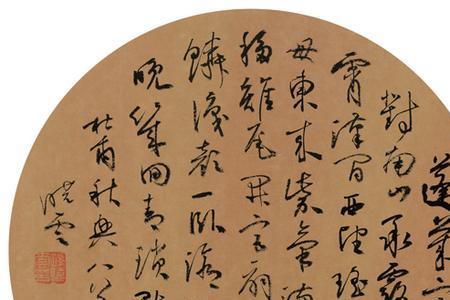 蓬萊
對南山承露
霄漢間西望瑤
母東來紫氣滿
移雉尾開宮扇
鱗識顏一臥滄
晚幾回青瑣點
杜甫秋興八
曉雲